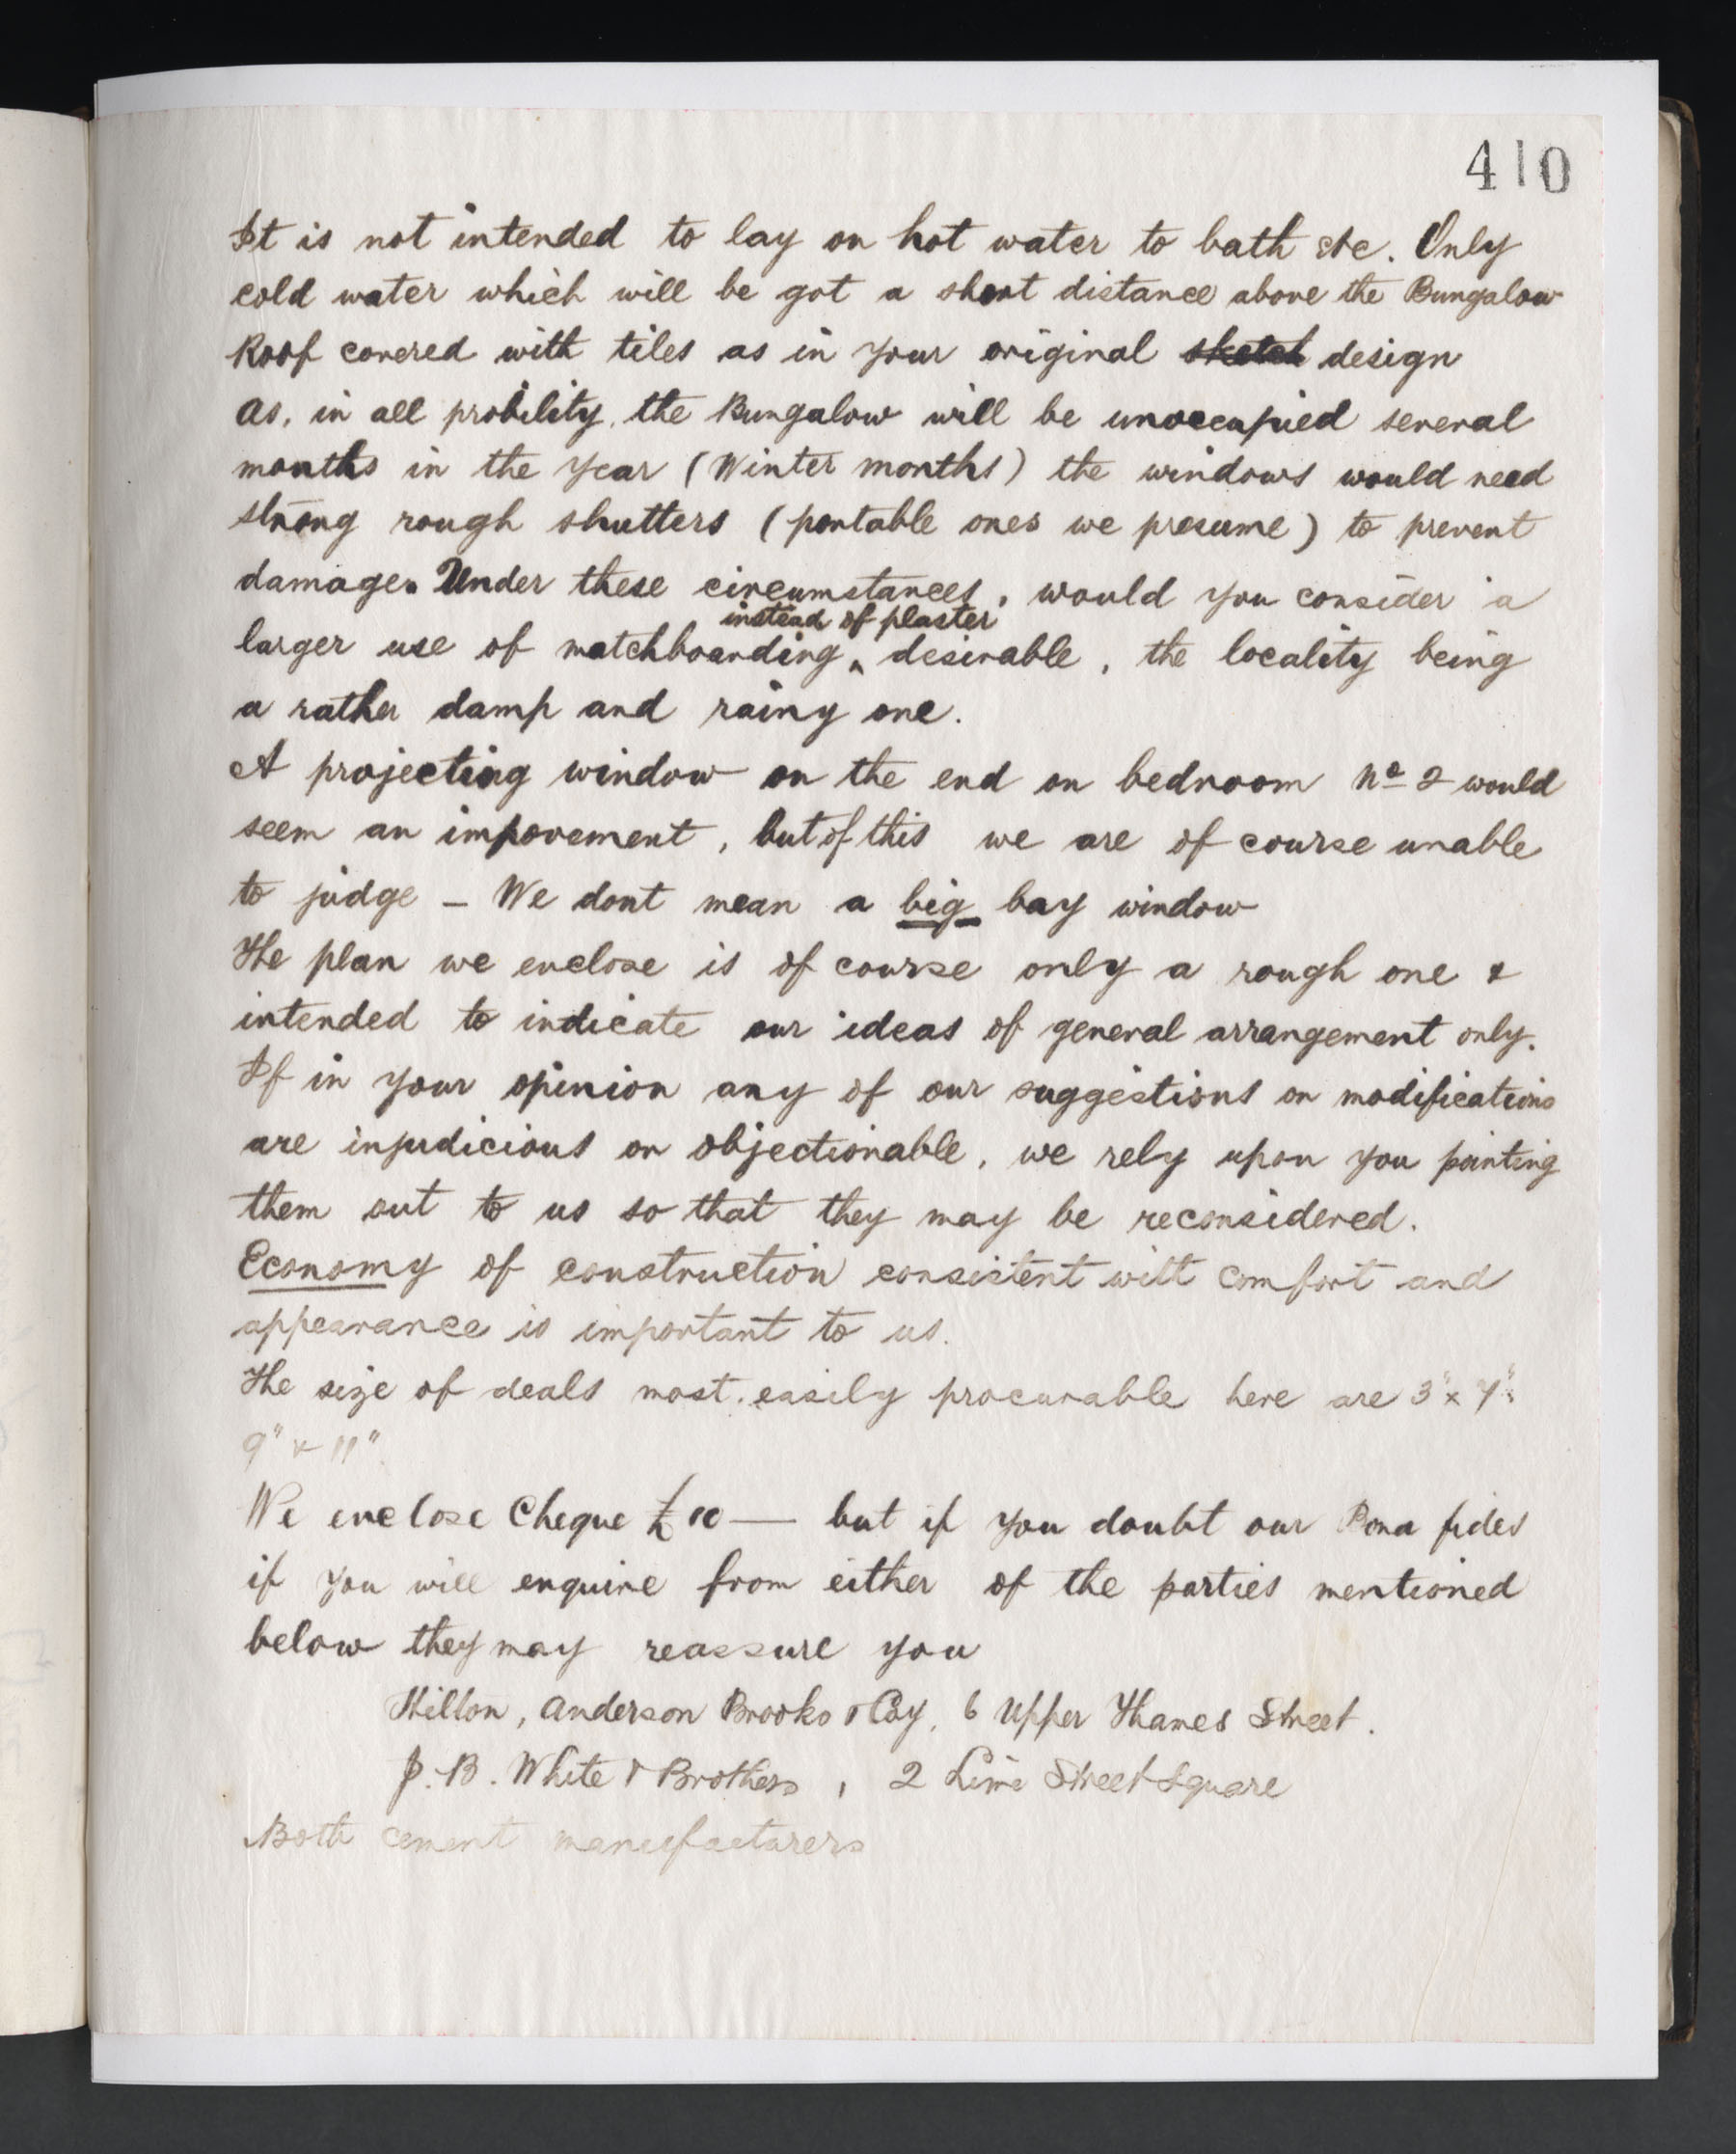 410
It is not intended to lay on hot water to bath etc. Only
cold water which will be got a short distance above the Bungalow
Roof covered with tiles as in your original sketch design
As, in all probility, the Bungalow will be unoccupied several
months in the year (Winter months) the windows would need
strong rough shutters (portable ones we presume) to prevent
damage. Under these circumstances, would you consider a
instead of plaster
larger use of matchboarding ‸ desirable, the locality being
a rather damp and rainy one.
A projecting window on the end on bedroom No 2 would
seem an impovement, but of this we are of course unable
to judge – We dont mean a big bay window
The plan we enclose is of course only a rough one &
intended to indicate our ideas of general arrangement only.
If in your opinion any of our suggestions or modifications
are injudicious or objectionable, we rely upon you pointing
them out to us so that they may be reconsidered.
Economy of construction consistent with comfort and
appearance is important to us.
The size of deals most easily procurable here are 3" x 7":
9" & 11"
We enclose Cheque £10 — but if you doubt our Bona fides
if you will enquire from either of the parties mentioned
below they may reassure you
Hilton, Anderson Brooks & Coy, 6 Upper Thames Street.
J. B. White & Brothers, 2 Lime Street Square
Both cement manufacturers